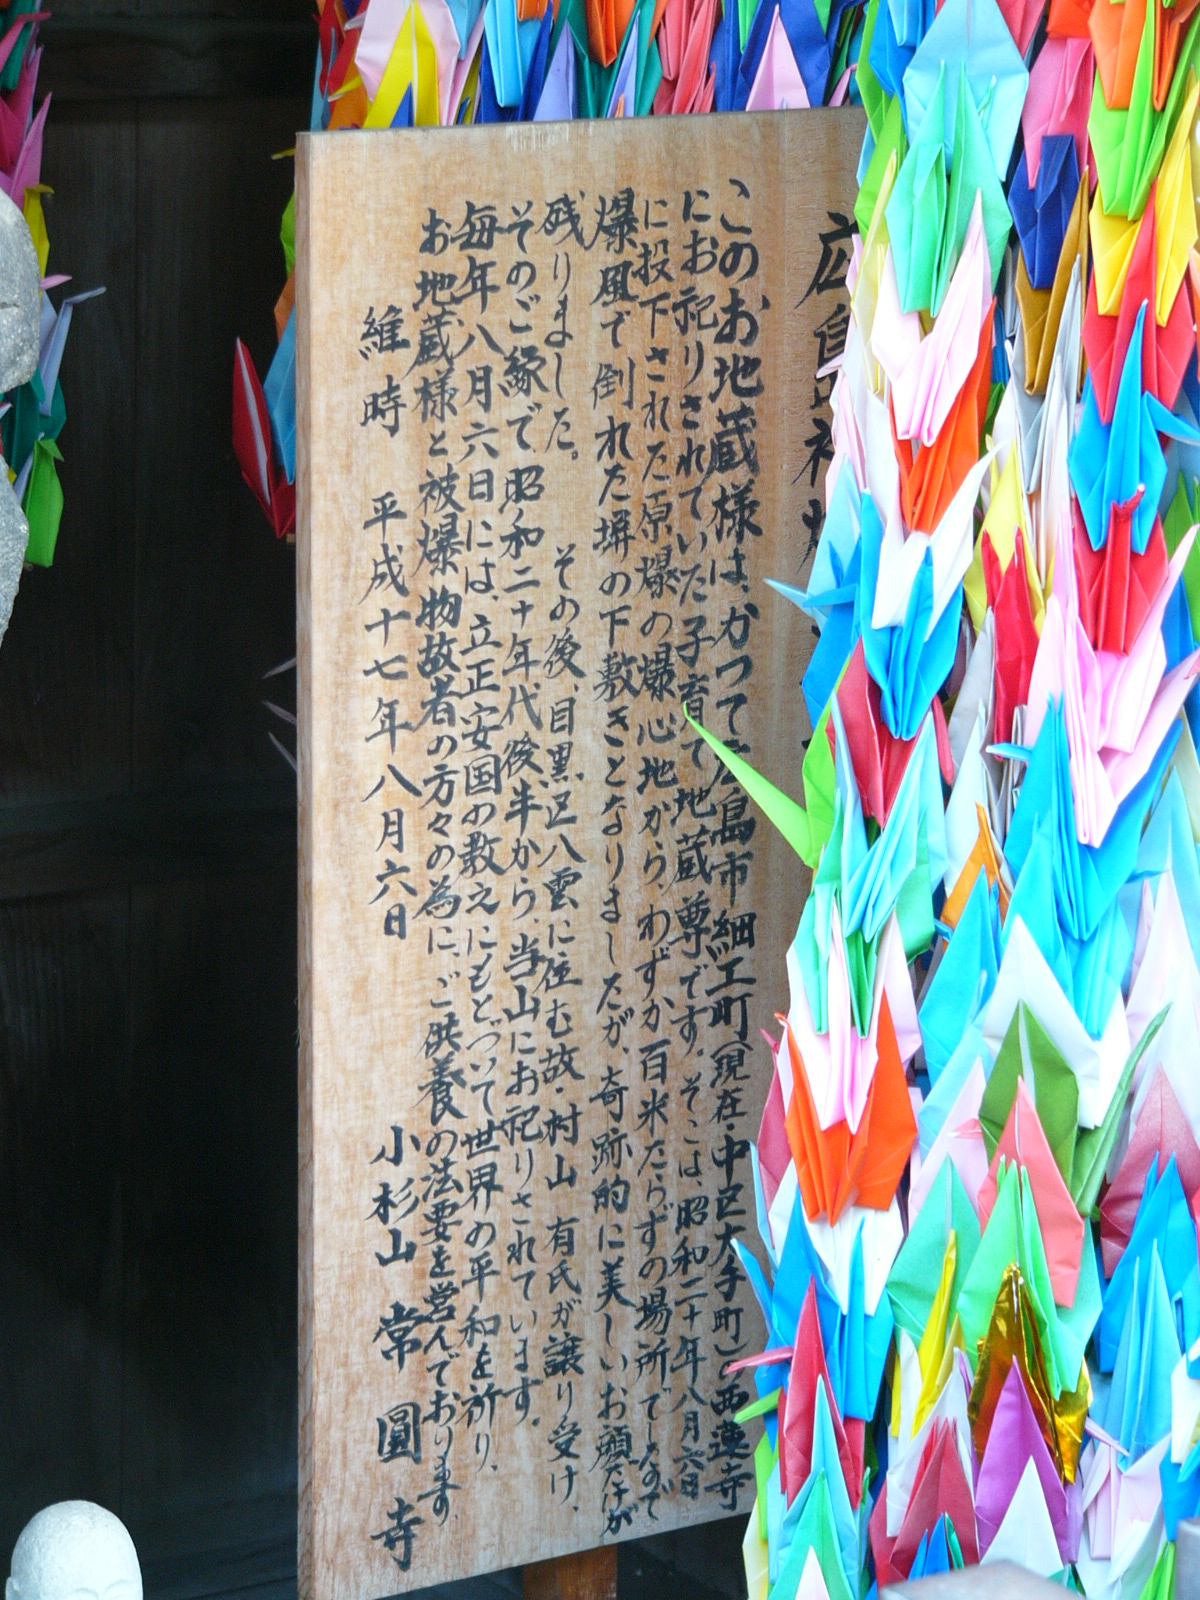 広島
このお地蔵様は、かつて広島市細工町(現在・中区大手町)の西蓮寺
にお祀りされていた子育て地蔵尊です。そこは、昭和二十年八月六日
に投下された原爆の爆心地から、わずか百米たらずの場所でしたので
爆風で倒れた塀の下敷きとなりましたが、奇跡的に美しいお顔だけが
残りました。 その後、目黒区八雲に住む故・村山 有氏が譲り受け、
そのご縁で、昭和二十年代後半から、当山にお祀りされています。
毎年八月六日には、立正安国の教えにもとづいて世界の平和を祈り、
お地蔵様と被爆物故者の方々の為に、ご供養の法要を営んでおります。
維時 平成十七年八月六日 小杉山 常圓寺